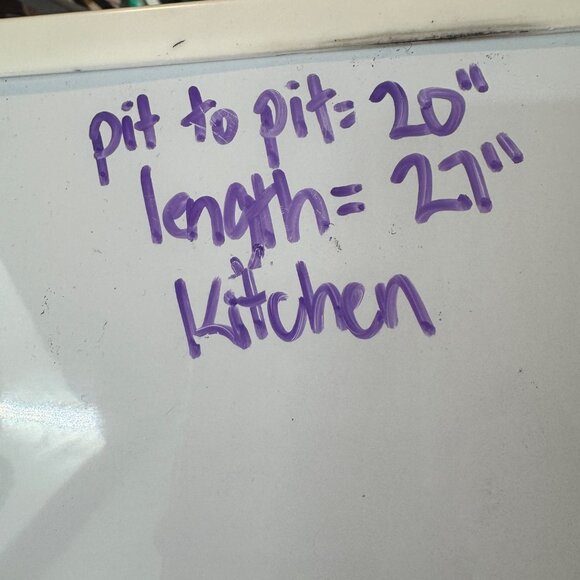 pit to pit= 20"
length= 27"
Kitchen